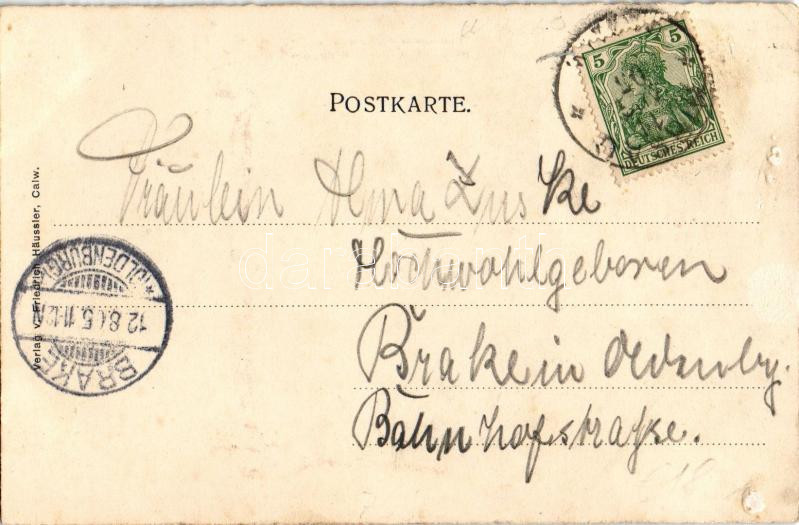 5
5
DEUTSCHES REICH
POSTKARTE.
Fräulein Alma Luske
Hochwohlgeboren
Brake in Oldenbg.
Bahnhofstraße.
Verlag v. Friedrich Häussler, Calw.
BRAKE
12.8.05.11-12N
*(OLDENBURG)*